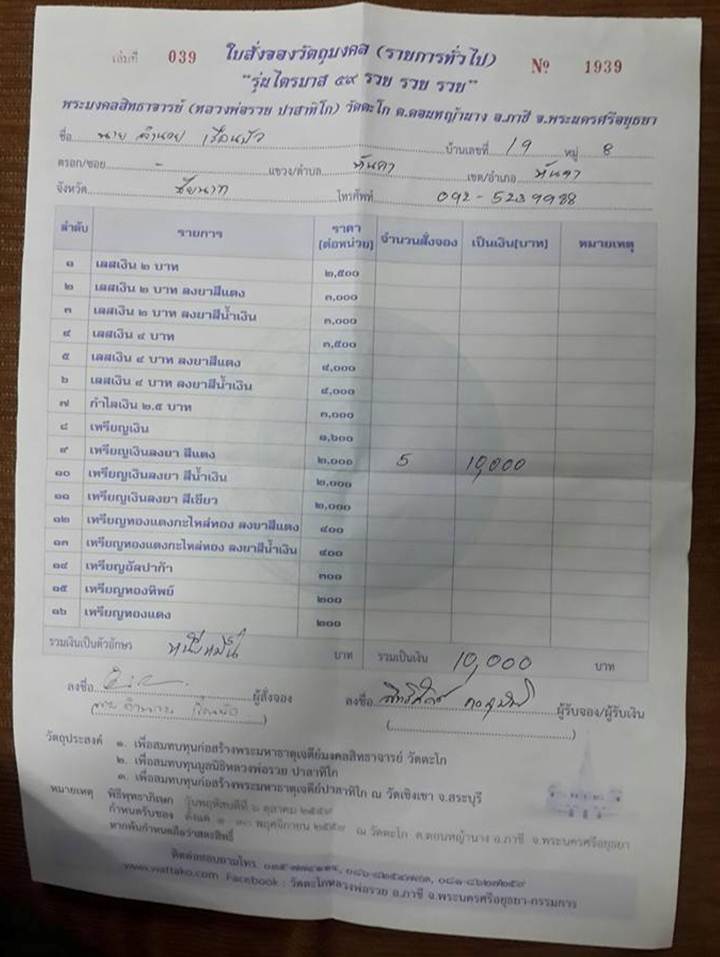 เล่มที่ 039 ใบสั่งจองวัตถุมงคล (รายการทั่วไป) № 1939
"รุ่นไตรมาส ๕๙ รวย รวย รวย"
พระมงคลสิทธาจารย์ (หลวงพ่อรวย ปาสาทิโก) วัดตะโก ต.ดอนหญ้านาง อ.ภาชี จ.พระนครศรีอยุธยา
ชื่อ นาย บ้านเลขที่ 19 หมู่ 8
ตรอก/ซอย - แขวง/ตำบล หันคา เขต/อำเภอ หันคา
จังหวัด ชัยนาท โทรศัพท์ 092-5239988
ลำดับ รายการ ราคา (ต่อหน่วย) จำนวนสั่งจอง เป็นเงิน(บาท) หมายเหตุ
๑ เลสเงิน ๒ บาท ๒,๕๐๐
๒ เลสเงิน ๒ บาท ลงยาสีแดง ๓,๐๐๐
๓ เลสเงิน ๒ บาท ลงยาสีน้ำเงิน ๓,๐๐๐
๔ เลสเงิน ๔ บาท ๓,๕๐๐
๕ เลสเงิน ๔ บาท ลงยาสีแดง ๔,๐๐๐
๖ เลสเงิน ๔ บาท ลงยาสีน้ำเงิน ๔,๐๐๐
๗ กำไลเงิน ๒.๕ บาท ๓,๐๐๐
๘ เหรียญเงิน ๑,๖๐๐
๙ เหรียญเงินลงยา สีแดง ๒,๐๐๐ 5 10,000
๑๐ เหรียญเงินลงยา สีน้ำเงิน ๒,๐๐๐
๑๑ เหรียญเงินลงยา สีเขียว ๒,๐๐๐
๑๒ เหรียญทองแดงกะไหล่ทอง ลงยาสีแดง ๔๐๐
๑๓ เหรียญทองแดงกะไหล่ทอง ลงยาสีน้ำเงิน ๔๐๐
๑๔ เหรียญอัลปาก้า ๓๐๐
๑๕ เหรียญทองทิพย์ ๒๐๐
๑๖ เหรียญทองแดง ๒๐๐
รวมเงินเป็นตัวอักษร หนึ่งหมื่น บาท รวมเป็นเงิน 10,000 บาท
ลงชื่อ ผู้สั่งจอง ลงชื่อ ผู้รับจอง/ผู้รับเงิน
วัตถุประสงค์ ๑. เพื่อสมทบทุนก่อสร้างพระมหาธาตุเจดีย์มงคลสิทธาจารย์ วัดตะโก
๒. เพื่อสมทบทุนมูลนิธิหลวงพ่อรวย ปาสาทิโก
๓. เพื่อสมทบทุนก่อสร้างพระมหาธาตุเจดีย์ปาสาทิโก ณ วัดเชิงเขา จ.สระบุรี
หมายเหตุ พิธีพุทธาภิเษก วันพฤหัสบดีที่ ๖ ตุลาคม ๒๕๕๙
กำหนดรับของ ตั้งแต่ พฤศจิกายน ๒๕๕๙ ณ วัดตะโก ต.ดอนหญ้านาง อ.ภาชี จ.พระนครศรีอยุธยา
หากพ้นกำหนดถือว่าสละสิทธิ์
ติดต่อสอบถามโทร.
www.wattako.com Facebook : วัดตะโกหลวงพ่อรวย อ.ภาชี จ.พระนครศรีอยุธยา-กรรมการ